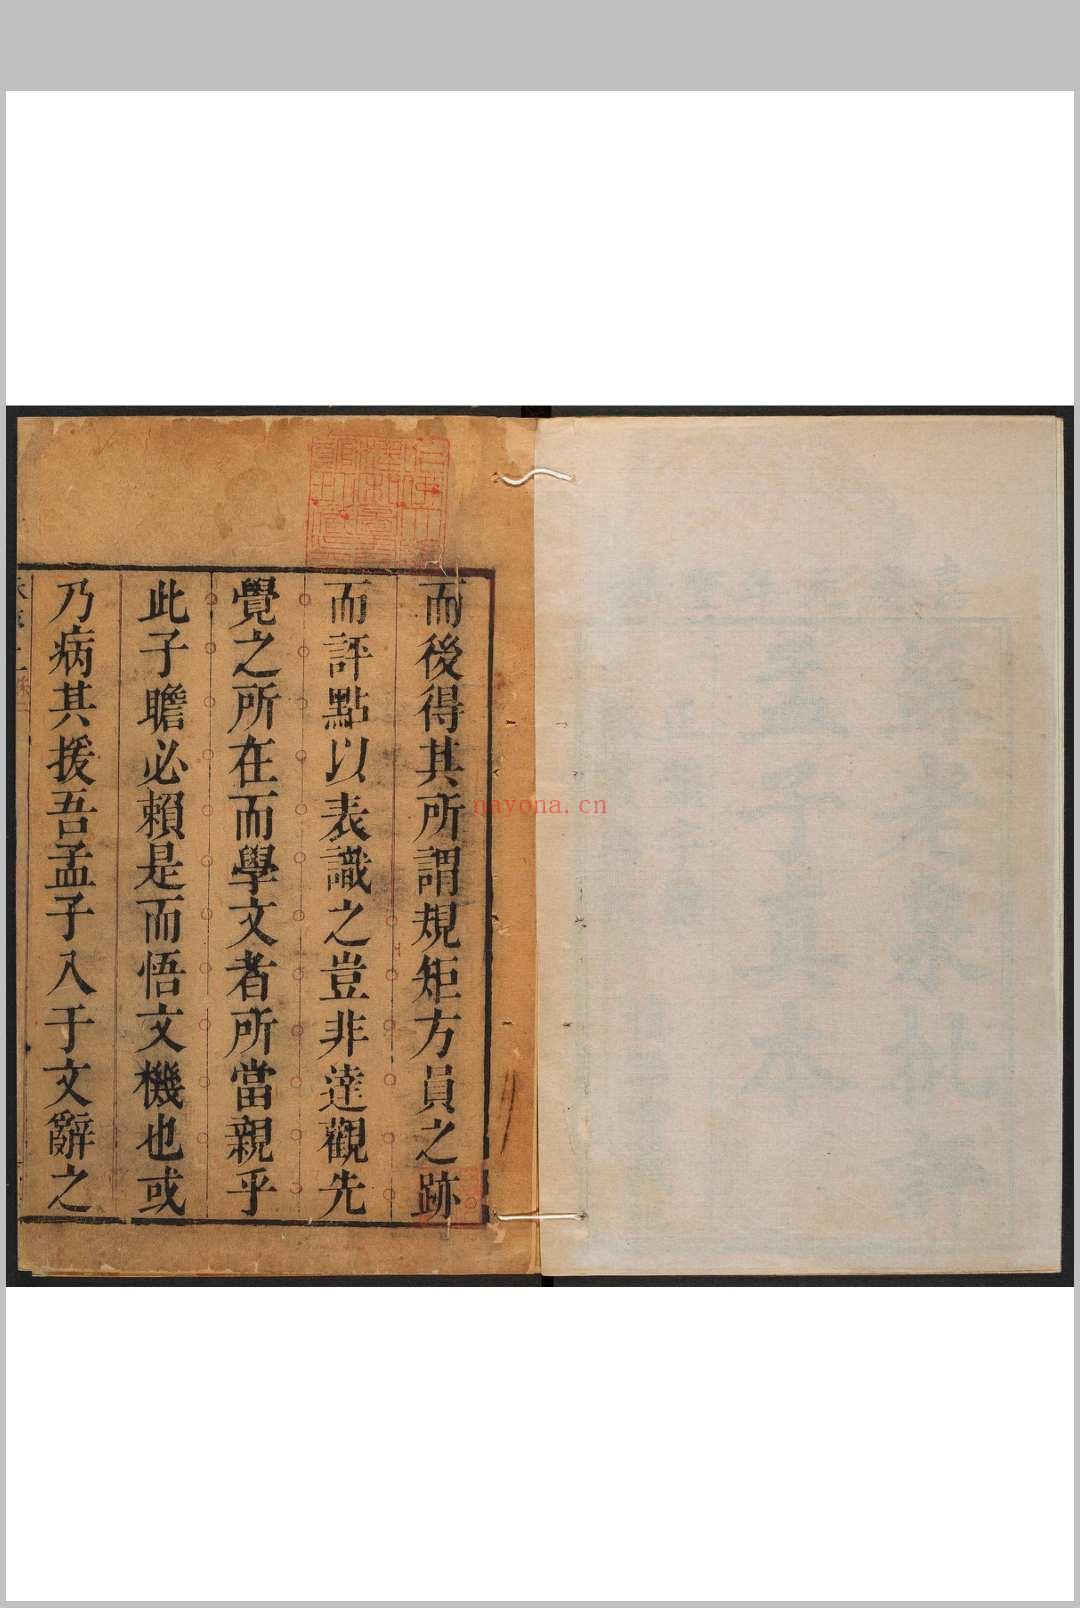 而後得其所謂規矩方員之跡
而評點以表識之豈非達觀先
覺之所在而學文者所當親乎
此子瞻必賴是而悟文機也或
乃病其援吾孟子入于文辭之
nayona.cn